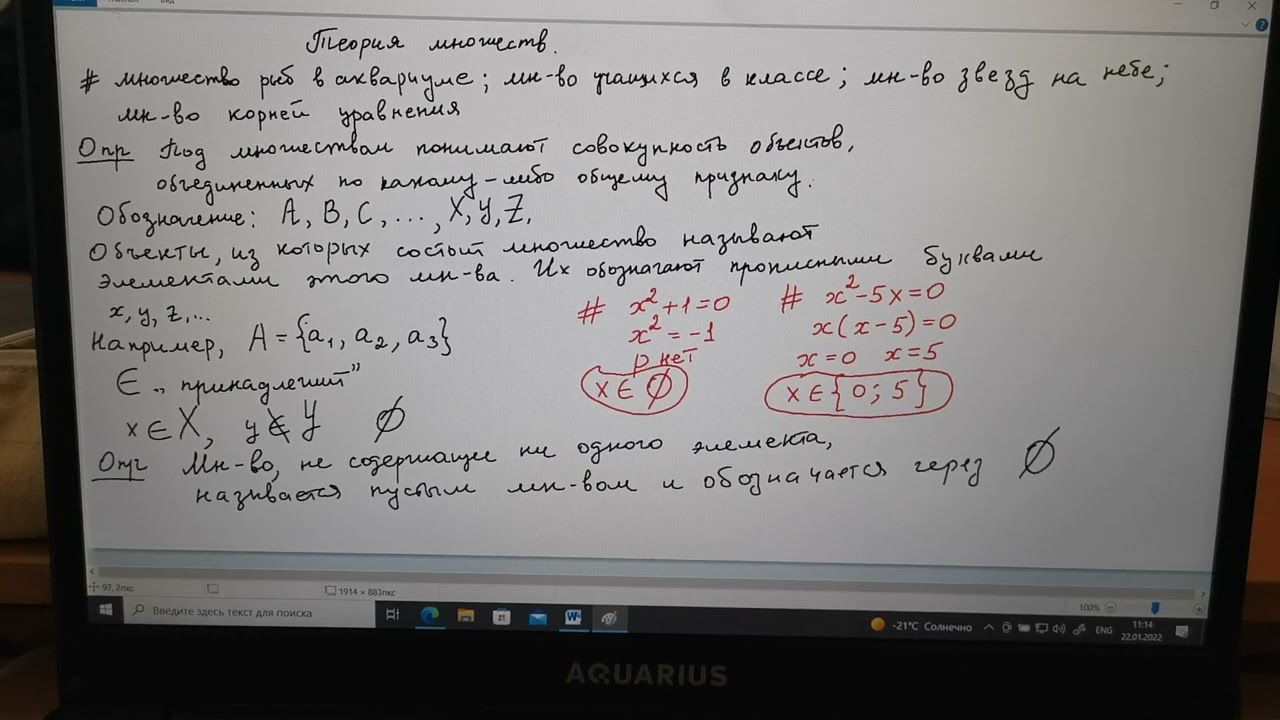 Теория множеств.
# множество рыб в аквариуме; мн-во учащихся в классе; мн-во звезд на небе;
мн-во корней уравнения
Опр Под множеством понимают совокупность объектов,
объединенных по какому-либо общему признаку.
Обозначение: A, B, C, ..., X, Y, Z.
Объекты, из которых состоит множество называют
элементами этого мн-ва. Их обозначают прописными буквами
x, y, z, ...
Например, A = {a₁, a₂, a₃}
∈ „принадлежит”
x ∈ X, y ∉ Y ∅
# x² + 1 = 0
x² = -1
р нет
x ∈ ∅
# x² - 5x = 0
x(x - 5) = 0
x = 0 x = 5
x ∈ {0; 5}
Опр Мн-во, не содержащее ни одного элемента,
называется пустым мн-вом и обозначается через ∅
97, 2пкс
1914 × 883пкс
100%
Введите здесь текст для поиска
-21°C Солнечно
ENG
11:14
22.01.2022
AQUARIUS